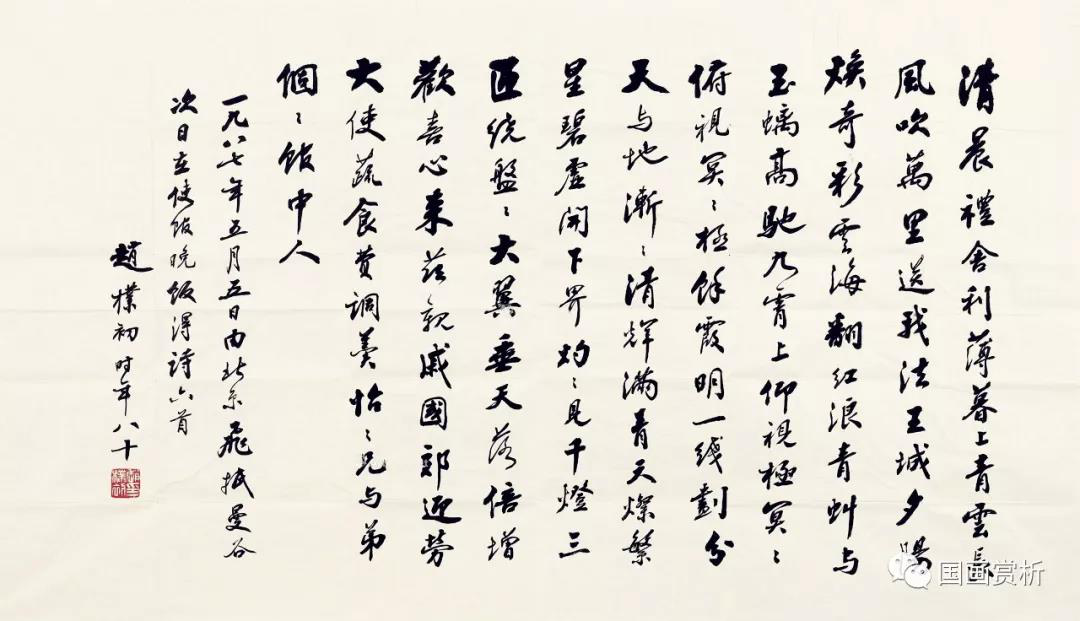 清晨禮舍利薄暮上青雲長
風吹萬里送我法王城夕陽
煥奇彩雲海翻紅浪青虯与
玉螭高馳九霄上仰視極冥〻
俯視冥〻極餘霞明一线劃分
天与地漸〻清輝滿青天燦繁
星碧虛開下界灼〻見千燈三
匝繞盤〻大翼垂天落倍增
歡喜心来茲親戚國郊迎勞
大使蔬食費調羹怡〻兄与弟
個〻飯中人
一九八七年五月五日由北京飛抵曼谷
次日在使館晚飯得詩六首
趙樸初时年八十
国画赏析